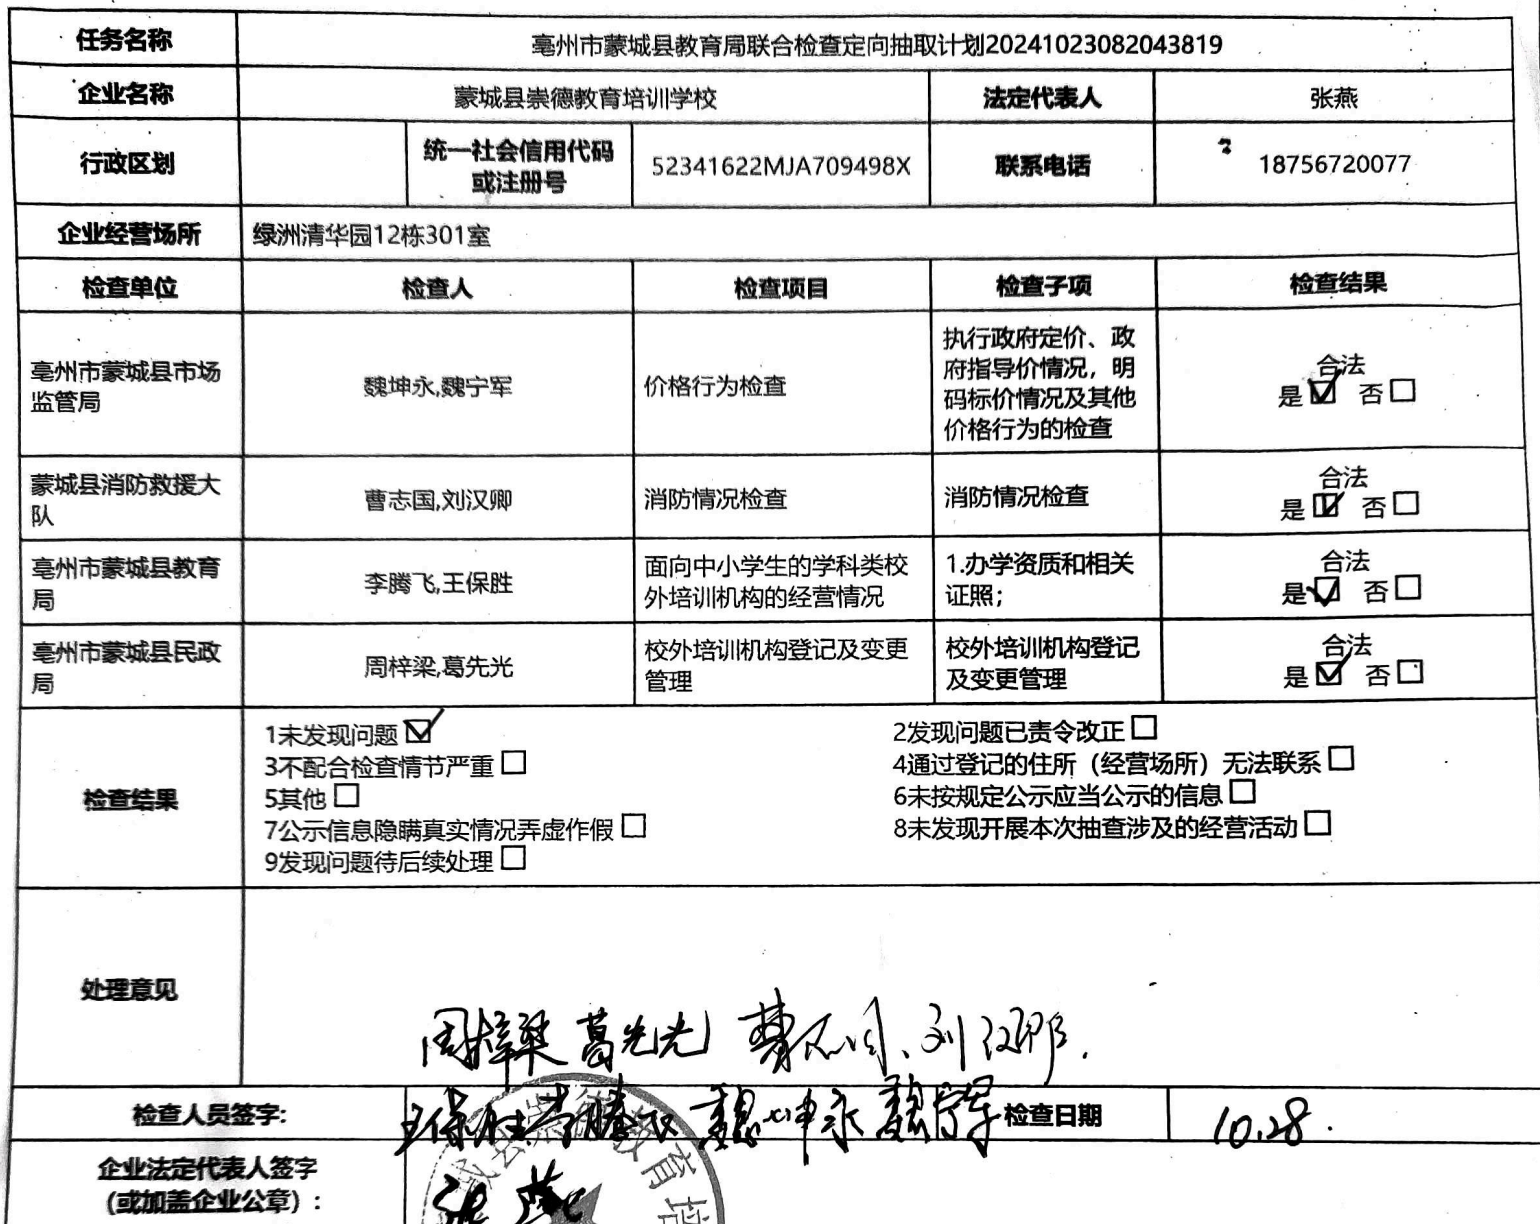 任务名称 亳州市蒙城县教育局联合检查定向抽取计划20241023082043819
企业名称 蒙城县崇德教育培训学校 法定代表人 张燕
行政区划 统一社会信用代码
或注册号 52341622MJA709498X 联系电话 18756720077
企业经营场所 绿洲清华园12栋301室
检查单位 检查人 检查项目 检查子项 检查结果
亳州市蒙城县市场
监管局 魏坤永,魏宁军 价格行为检查 执行政府定价、政
府指导价情况，明
码标价情况及其他
价格行为的检查 合法
是☑ 否□
蒙城县消防救援大
队 曹志国,刘汉卿 消防情况检查 消防情况检查 合法
是☑ 否□
亳州市蒙城县教育
局 李腾飞,王保胜 面向中小学生的学科类校
外培训机构的经营情况 1.办学资质和相关
证照； 合法
是☑ 否□
亳州市蒙城县民政
局 周梓梁,葛先光 校外培训机构登记及变更
管理 校外培训机构登记
及变更管理 合法
是☑ 否□
检查结果
1未发现问题☑ 2发现问题已责令改正□
3不配合检查情节严重□ 4通过登记的住所（经营场所）无法联系□
5其他□ 6未按规定公示应当公示的信息□
7公示信息隐瞒真实情况弄虚作假□ 8未发现开展本次抽查涉及的经营活动□
9发现问题待后续处理□
处理意见
周梓梁 葛先光 曹志国、刘汉卿.
检查人员签字: 王保胜 李腾飞 魏坤永 魏宁军 检查日期 10.28.
企业法定代表人签字
（或加盖企业公章）: 张燕
教育培